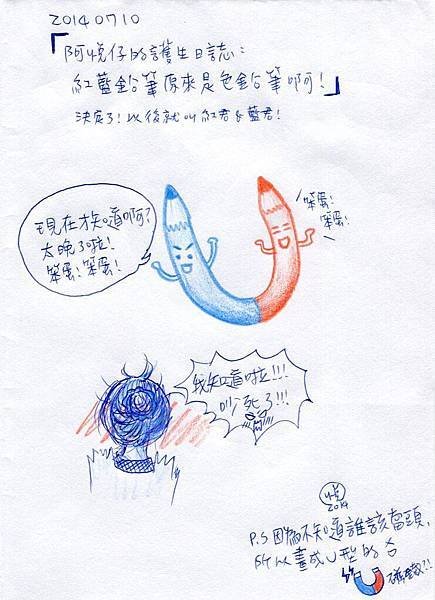 20140710
「阿悅仔的護生日誌：
紅藍鉛筆原來是色鉛筆啊！」
決定了！以後就叫紅君&藍君！
現在才知道啊？
太晚了啦！
笨蛋！笨蛋！
笨蛋！
笨蛋！
我知道啦!!!
吵死了!!!
悅
2014
P.S 因為不知道誰該當頭，
所以畫成U型的
磁鐵?!!